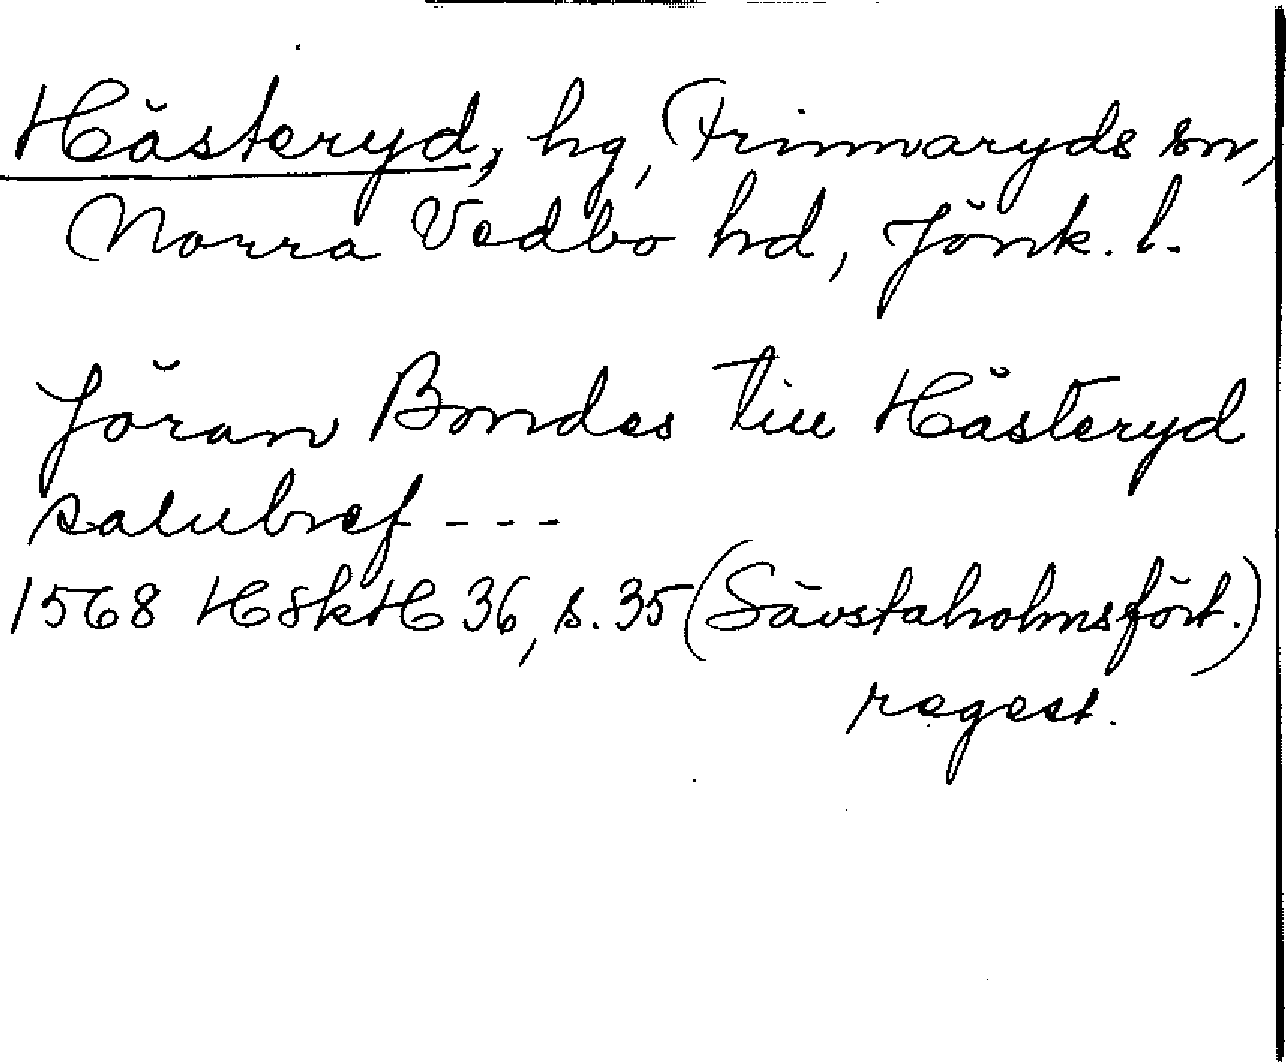 Hästeryd, hg, Frinnaryds sn,
Norra Vedbo hd, Jönk. l.
Jöran Bondes till Hästeryd
salubref - - -
1568 HSkH 36, s. 35 (Sävstaholmsfört.)
regest.